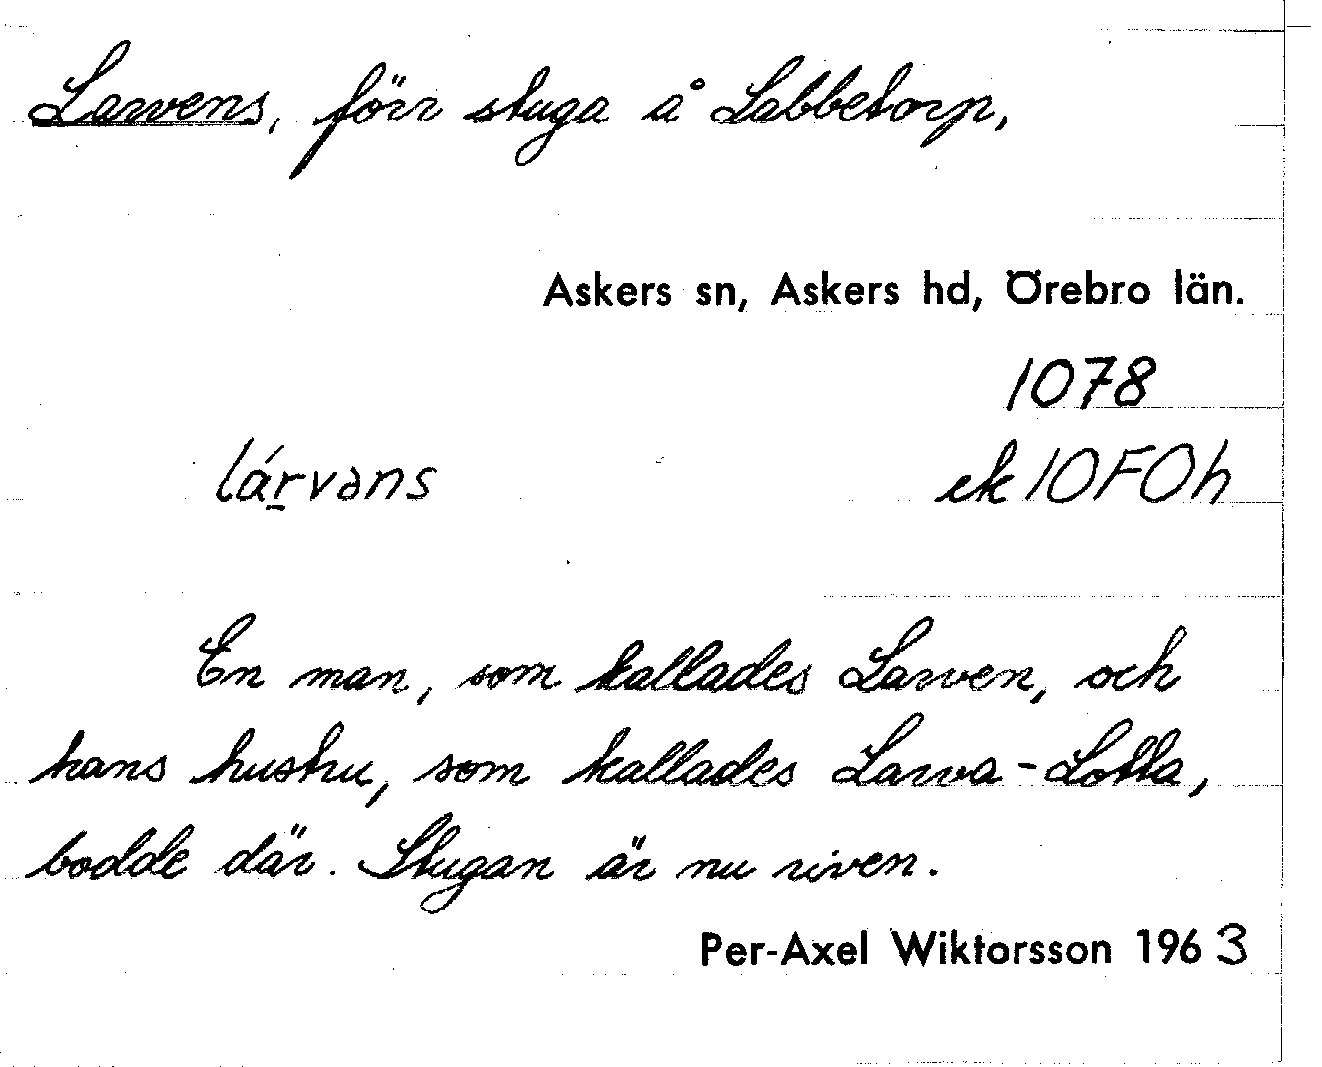 Larvens, förr stuga å Labbetorp,
Askers sn, Askers hd, Örebro län.
1078
lár̠vəns
ek 10F0h
En man, som kallades Larven, och
hans hustru, som kallades Larva-Lotta,
bodde där. Stugan är nu riven.
Per-Axel Wiktorsson 1963